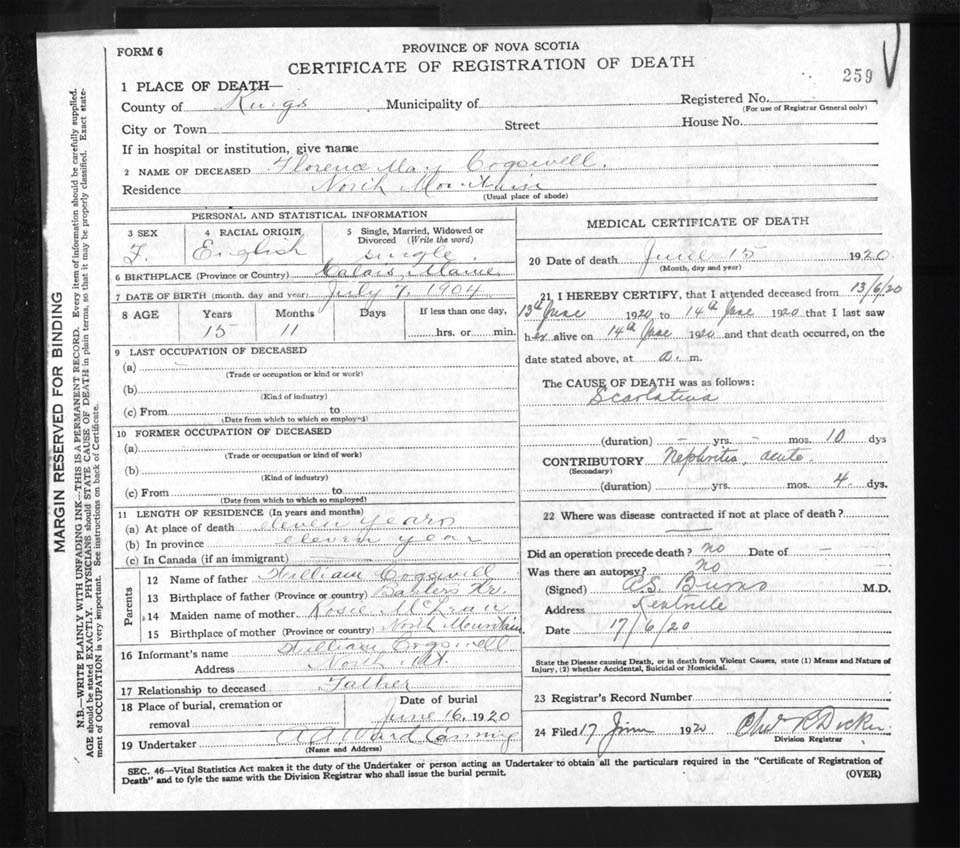 FORM 6
PROVINCE OF NOVA SCOTIA
CERTIFICATE OF REGISTRATION OF DEATH
259
1 PLACE OF DEATH—
County of Kings Municipality of Registered No.
(For use of Registrar General only)
City or Town Street House No.
If in hospital or institution, give name
2 NAME OF DECEASED Florence May Cogswell.
Residence North Mountain
(Usual place of abode)
PERSONAL AND STATISTICAL INFORMATION
3 SEX 4 RACIAL ORIGIN 5 Single, Married, Widowed or
Divorced (Write the word)
F. English single
6 BIRTHPLACE (Province or Country) Calais, Maine
7 DATE OF BIRTH (month, day and year) July 7, 1904
8 AGE Years Months Days If less than one day,
15 11 hrs. or min.
9 LAST OCCUPATION OF DECEASED
(a)
(Trade or occupation or kind or work)
(b)
(Kind of industry)
(c) From to
(Date from which to which so employed)
10 FORMER OCCUPATION OF DECEASED
(a)
(Trade or occupation or kind of work)
(b)
(Kind of industry)
(c) From to
(Date from which to which so employed)
11 LENGTH OF RESIDENCE (In years and months)
(a) At place of death eleven years
(b) In province eleven year
(c) In Canada (if an immigrant)
Parents
12 Name of father William Cogswell
13 Birthplace of father (Province or country)
14 Maiden name of mother Rosie
15 Birthplace of mother (Province or country) North Mountain
16 Informant's name William Cogswell
Address North Mt.
17 Relationship to deceased Father
18 Place of burial, cremation or Date of burial
removal June 16, 1920
19 Undertaker A.A. Ward Canning
(Name and Address)
MEDICAL CERTIFICATE OF DEATH
20 Date of death June 15 1920.
(Month, day and year)
21 I HEREBY CERTIFY, that I attended deceased from 13/6/20
13th June 1920 to 14th June 1920 that I last saw
her alive on 14th June 1920 and that death occurred, on the
date stated above, at a. m.
The CAUSE OF DEATH was as follows:
Scarlatina
(duration) – yrs. – mos. 10 dys
CONTRIBUTORY Nephritis, acute.
(Secondary)
(duration) yrs. mos. 4 dys.
22 Where was disease contracted if not at place of death?
Did an operation precede death? no Date of –
Was there an autopsy? no
(Signed) M.D.
Address Kentville
Date 17/6/20
State the Disease causing Death, or in death from Violent Causes, state (1) Means and Nature of
Injury, (2) whether Accidental, Suicidal or Homicidal.
23 Registrar's Record Number
24 Filed 17 June 1920
Division Registrar
SEC. 46—Vital Statistics Act makes it the duty of the Undertaker or person acting as Undertaker to obtain all the particulars required in the "Certificate of Registration of
Death" and to fyle the same with the Division Registrar who shall issue the burial permit.
(OVER)
MARGIN RESERVED FOR BINDING
N.B.—WRITE PLAINLY WITH UNFADING INK—THIS IS A PERMANENT RECORD. Every item of information should be carefully supplied.
AGE should be stated EXACTLY. PHYSICIANS should STATE CAUSE OF DEATH in plain terms, so that it may be properly classified. Exact state-
ment of OCCUPATION is very important. See instructions on back of Certificate.